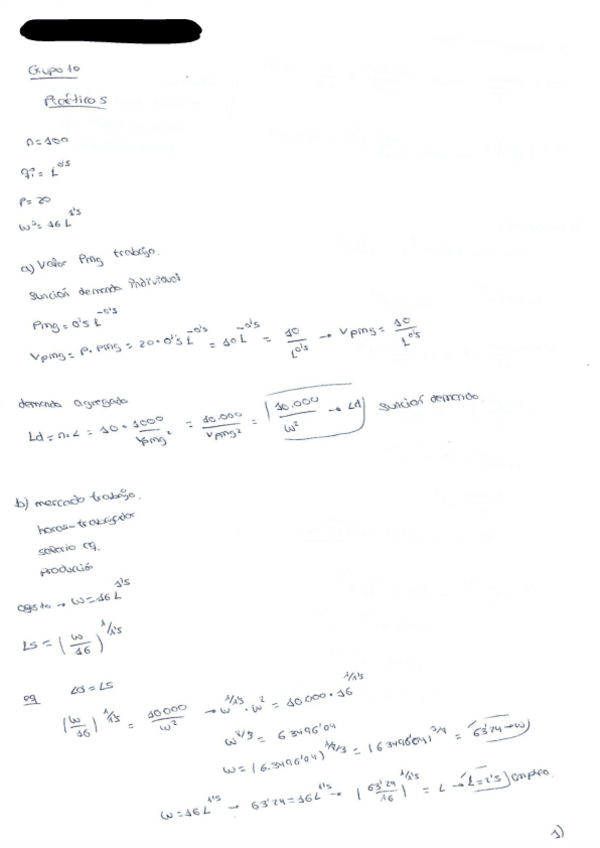 Grupo 10
Prácticos
n = 100
qi = L^0'5
P = 20
w^s = 16 L^1'5
a) Valor Pmg trabajo.
función demanda individual
Pmg = 0'5 L^-0'5
Vpmg = P. Pmg = 20 · 0'5 L^-0'5 = 10 L^-0'5 = 10 / L^0'5 → Vpmg = 10 / L^0'5
demanda agregada
Ld = n·L = 10 · 1000 / Vpmg² = 10.000 / Vpmg² = 10.000 / w² → Ld función demanda.
b) mercado trabajo.
horas-trabajador
salario eq.
producción
agosto → w = 16 L^1'5
Ls = (w / 16)^1/1'5
eq Ld = Ls
(w / 16)^1/1'5 = 10000 / w² → w^1/1'5 · w² = 10000 · 16^1/1'5
w^8/3 = 63496'04
w = (63496'04)^1/8/3 = (63496'04)^3/8 = 63'24 → w
w = 16 L^1'5 → 63'24 = 16 L^1'5 → (63'24 / 16)^1/1'5 = L → L = 2'5 empleo.
1)